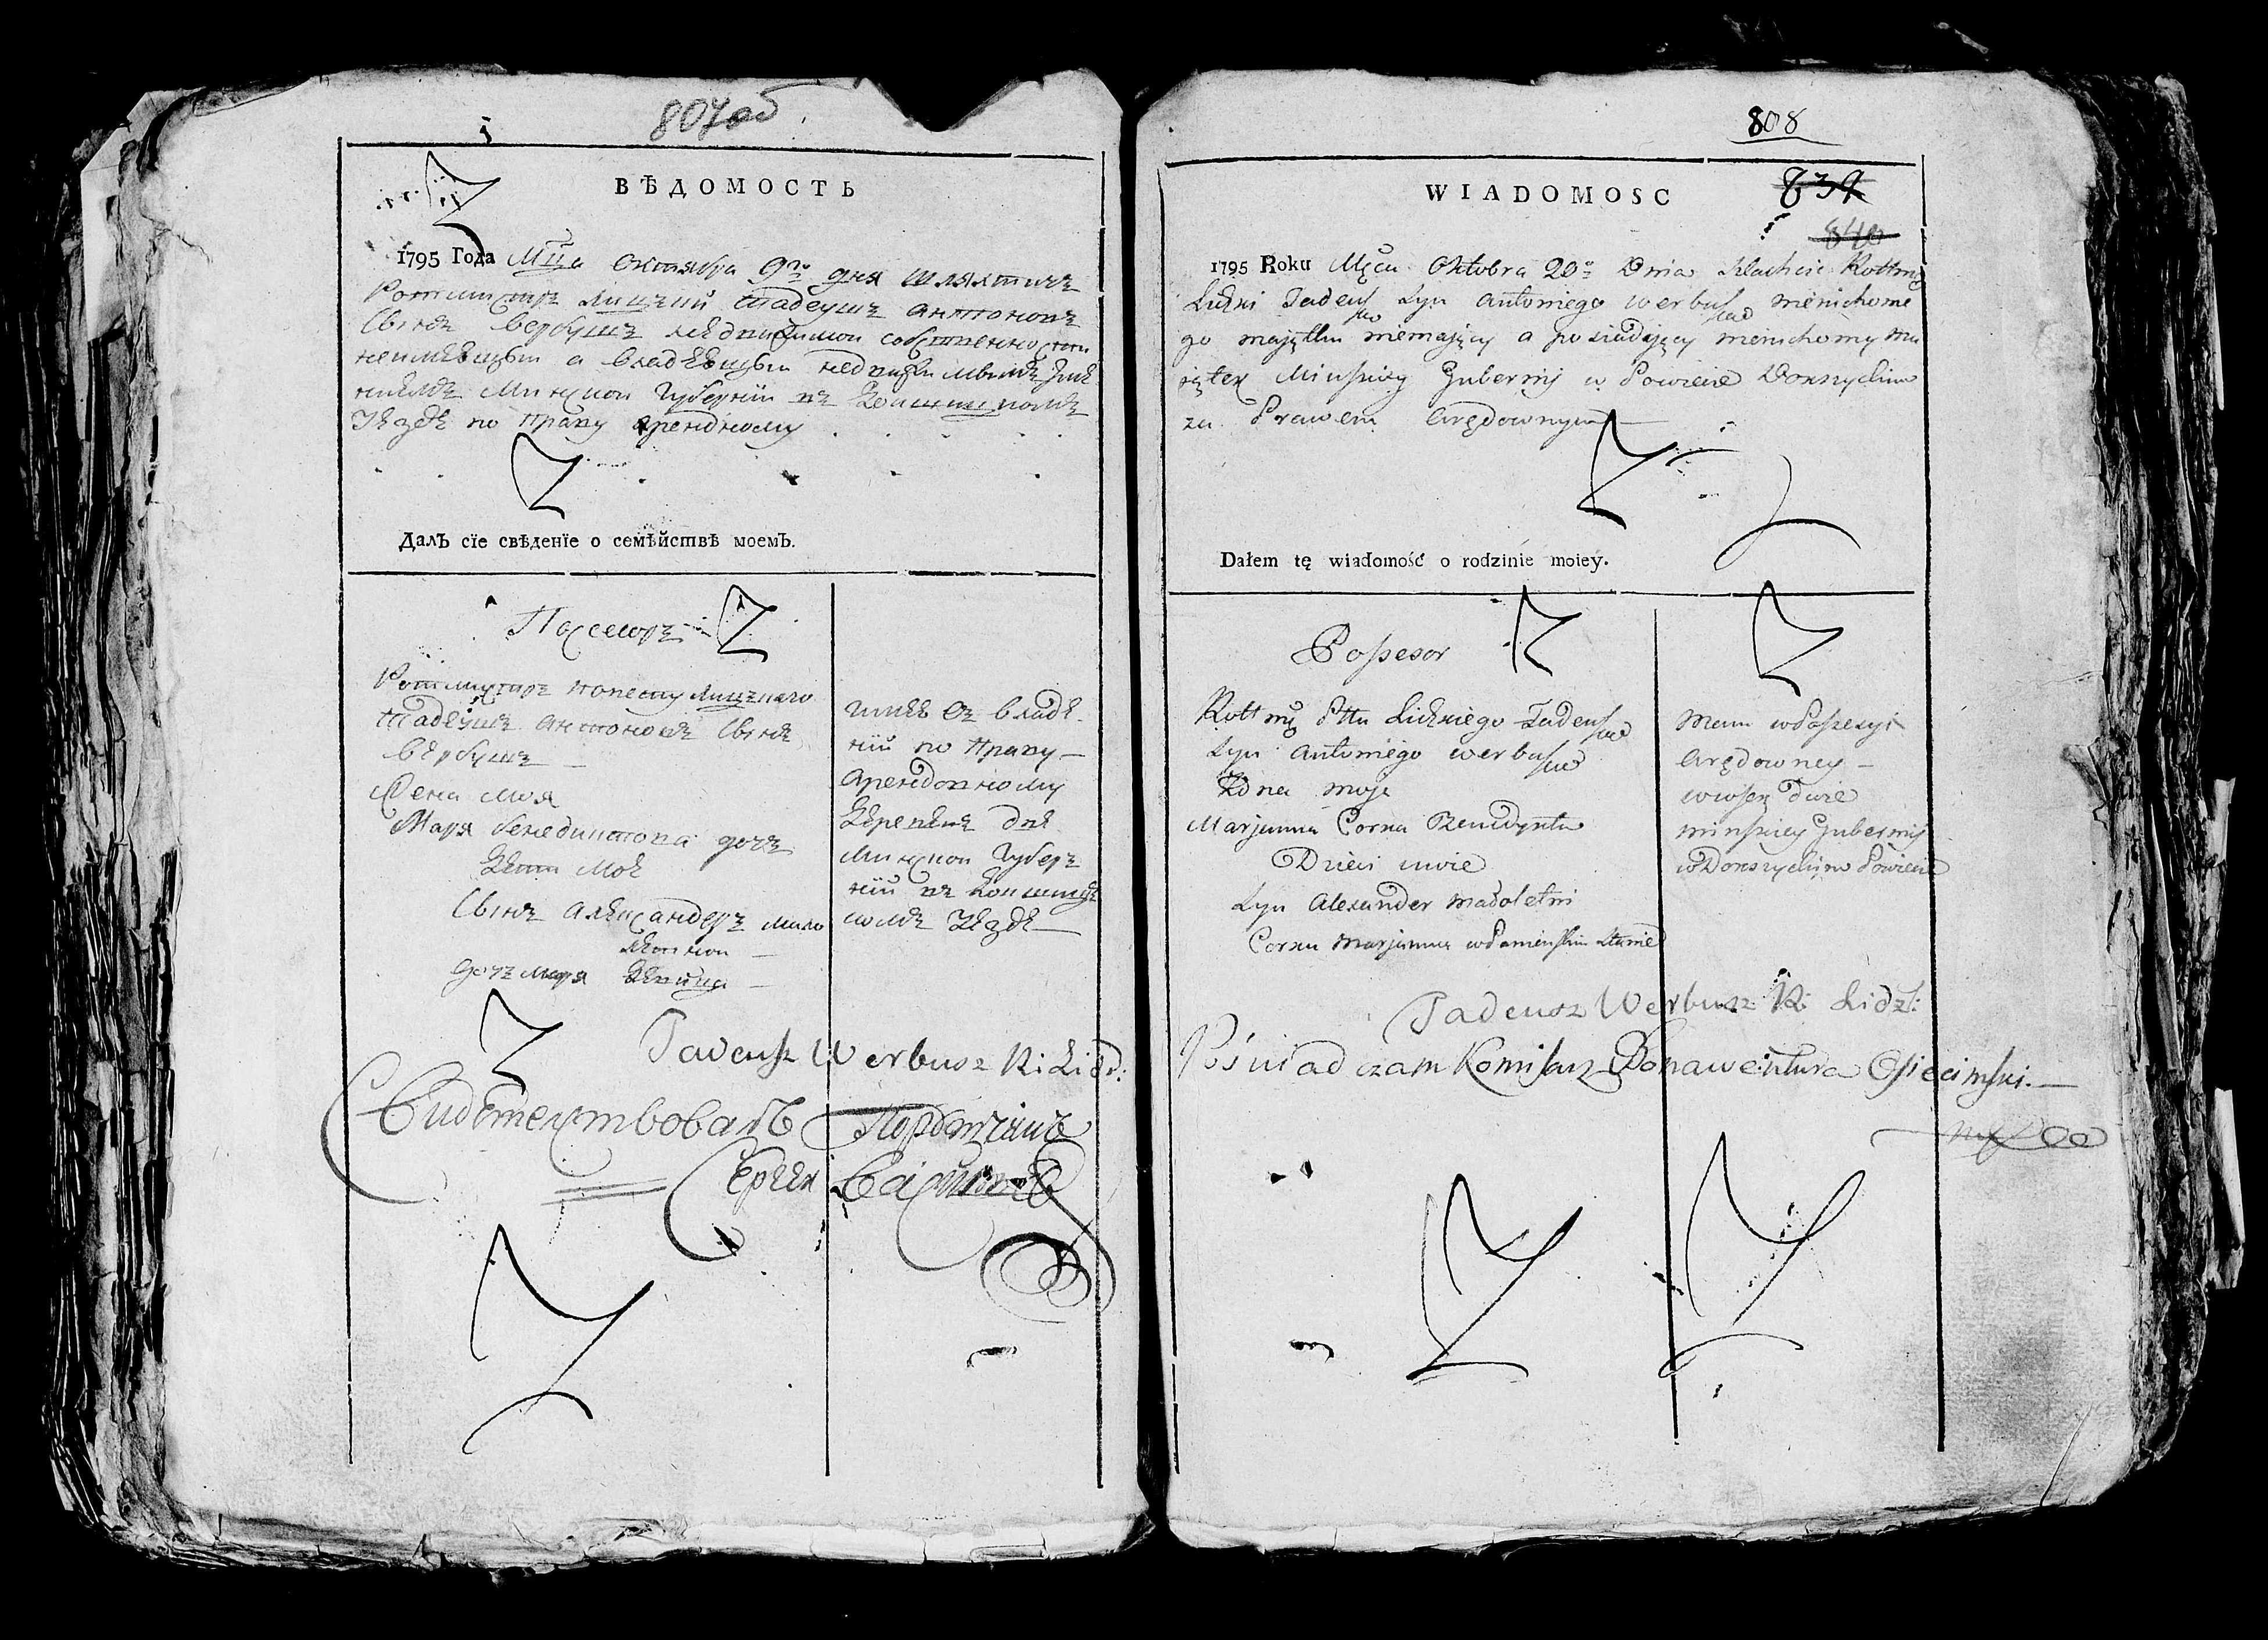 807об
ВѢДОМОСТЬ
1795 Года Мца Октября 9го дня шляхтичъ
Ротмистръ Лицкий Тадеушъ Антоновъ
Сынъ Вербушъ недвижимой собственности
неимѣвщы а владѣвщы недвижимымъ
Минской Губернии въ
Уездѣ по праву арендному
Далъ сїе свѣденїе о семѣйствѣ моемъ.
Посесоръ
Ротмистръ повету Лицкаго
Тадеушъ Антоновъ Сынъ
Вербушъ
Жена моя
Маря Бенедиктова дочъ
Дети мое
Сынъ Александеръ мало
летнои
дочъ Маря Девица
владе
нии по праву
Арендовному
Деревень две
Минской Губер
нии въ
Уезде
Tadeusz Werbusz R: Lidz:
Свидетелствовалъ Порутчикъ
Сергей
808
839
840
WIADOMOSC
1795 Roku Mca Oktobra 20o Dnia Szlachcic Rottm
Lidzki Tadeusz Syn Antoniego Werbusz nieruchome
go majątku niemający a posiadający nieruchomy ma
jątek Minskiey Gubernij w Powiecie Dokszyckim
za Prawem Arędownym
Dałem tę wiadomość o rodzinie moiey.
Possesor
Rottm Pttu Lidzkiego Tadeusz
Syn Antoniego Werbusz
Żona moja
Marjanna Corka Benedykta
Dzieci moie
Syn Alexander Małoletni
Corka Marjanna w Panieńskim Stanie
Mam w Possesyi
Arędowney
wioski dwie
Minskiey Gubernij
w Dokszyckim Powiecie
Tadeusz Werbusz R: Lidz:
Poświadczam Komisarz Bonawentura Osiecimski.